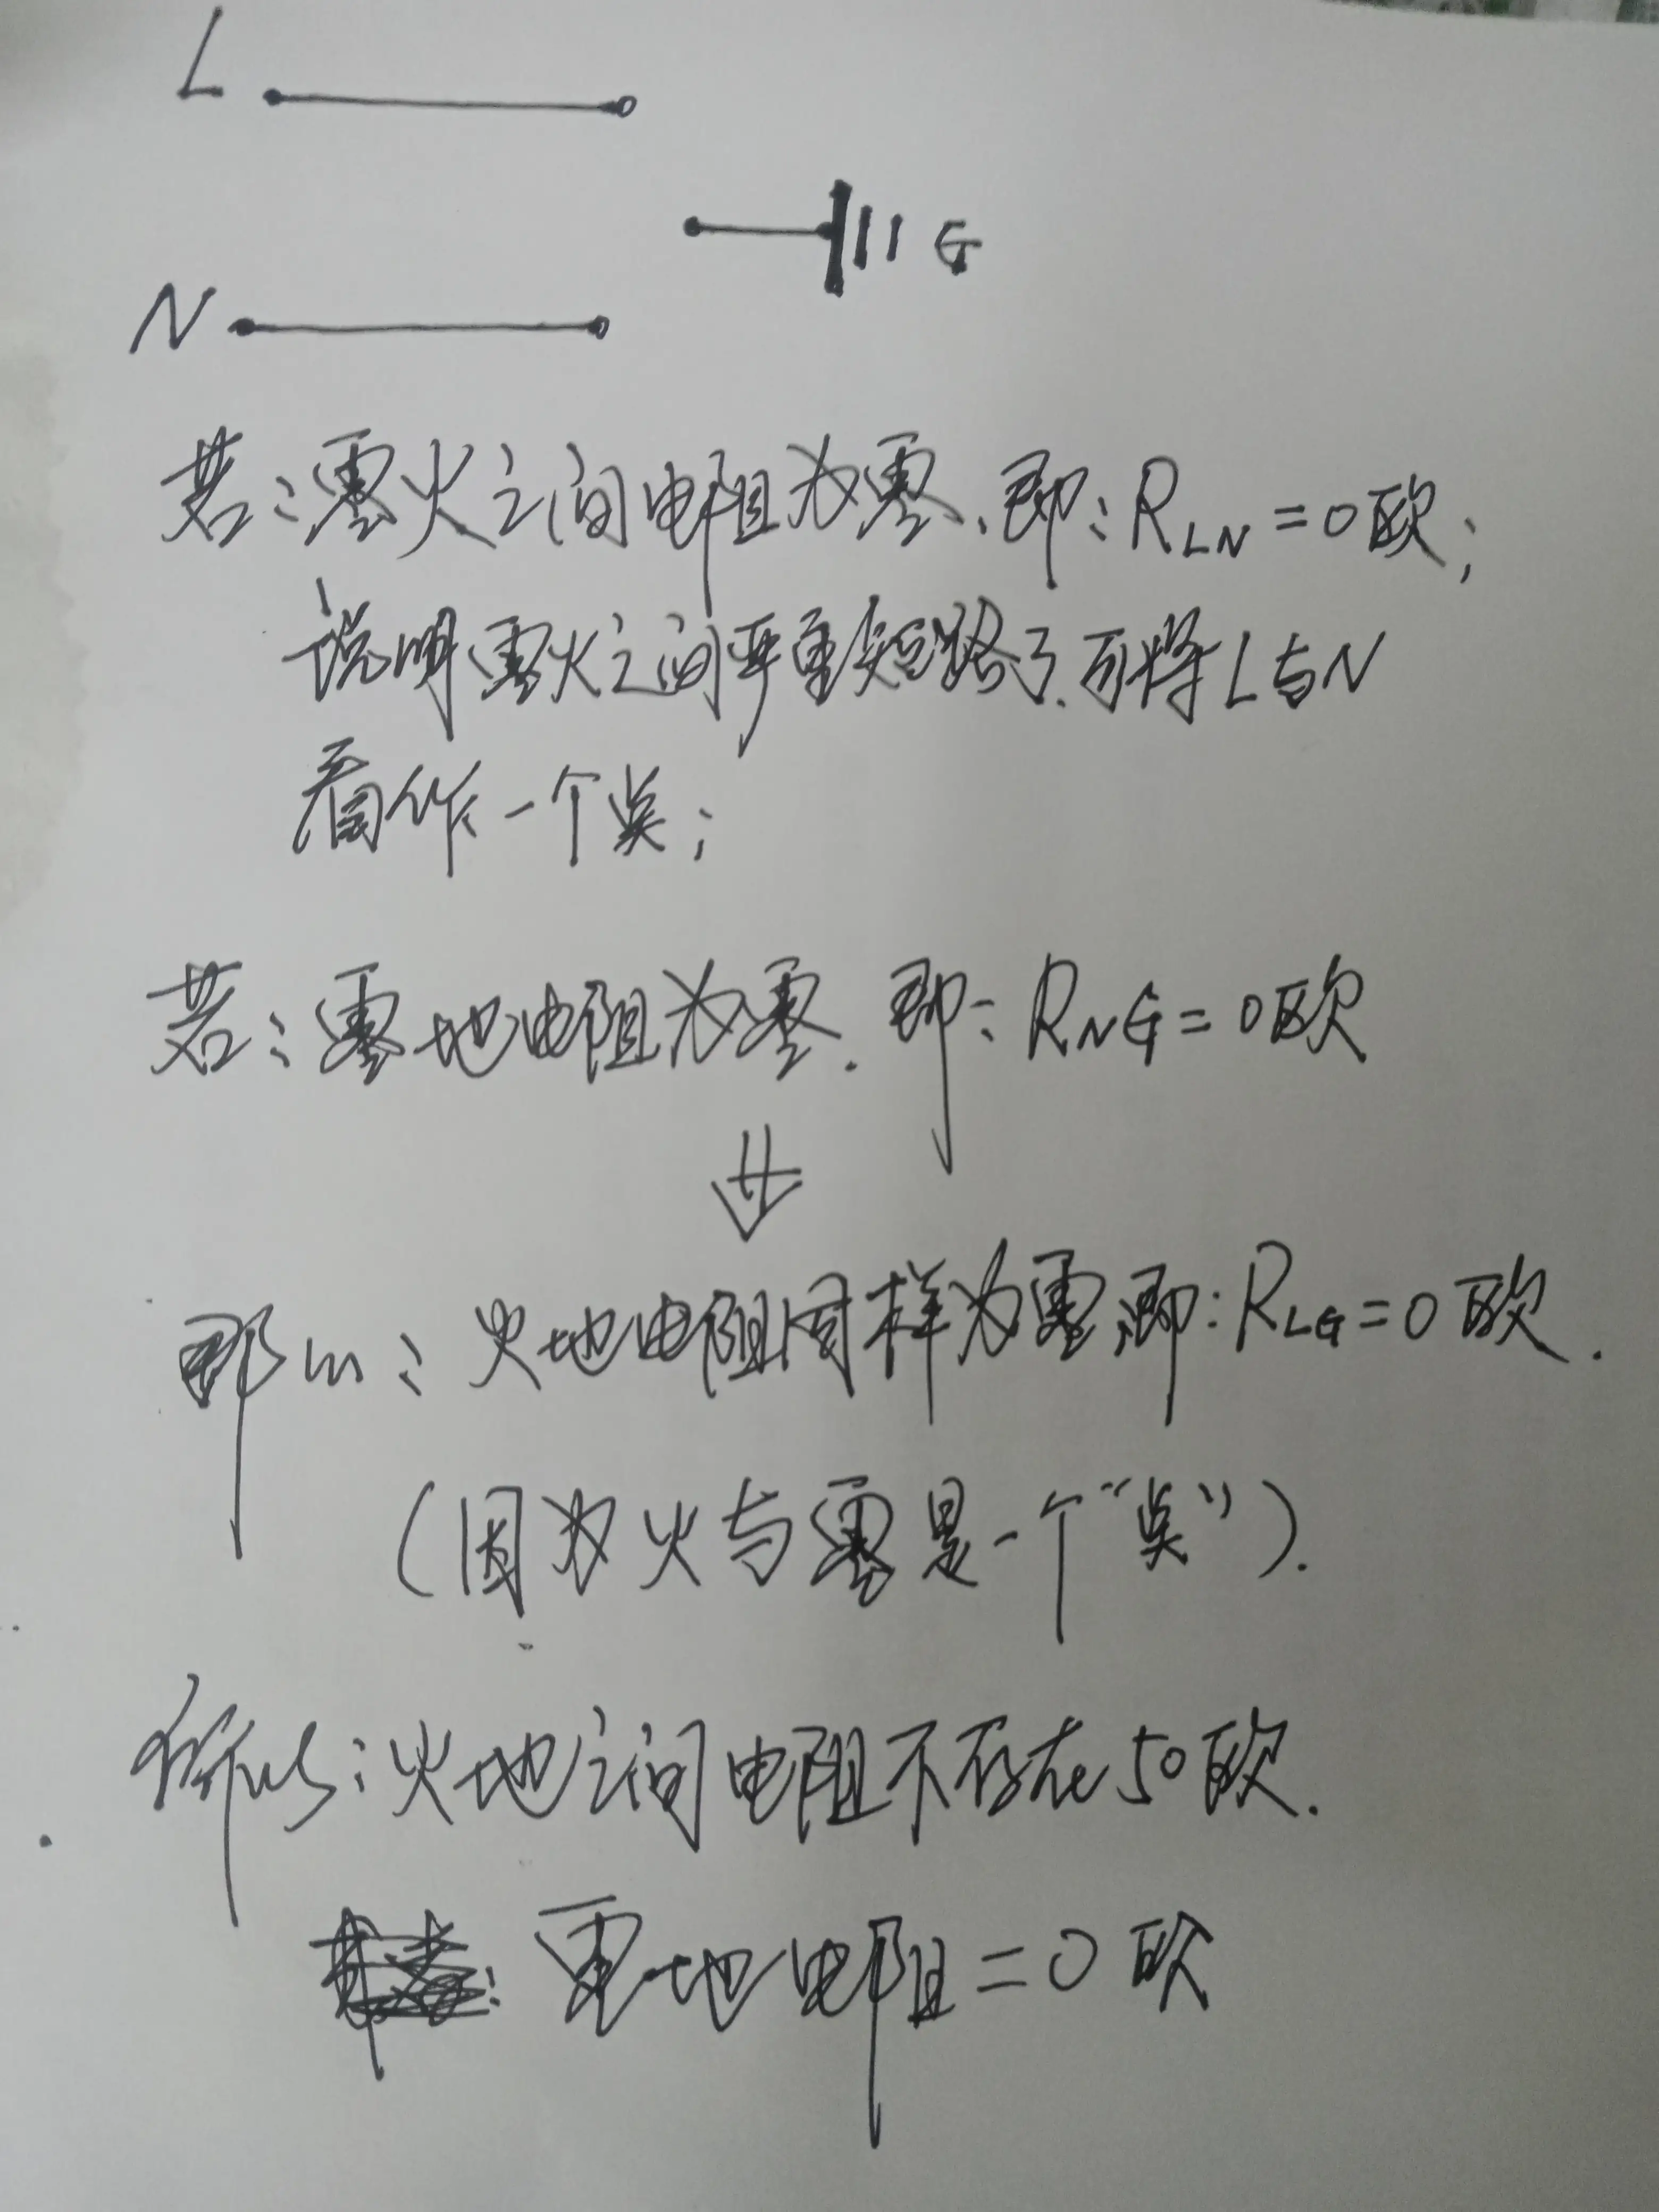 L
G
N
若:零火之间电阻为零、即:RLN=0欧;
说明零火之间严重短路了.可将L与N
看作一个点;
若:零地电阻为零.即:RNG=0欧
⇓
那么:火地电阻同样为零,即:RLG=0欧.
(因为火与零是一个“点”).
所以:火地之间电阻不存在50欧.
零地电阻=0欧